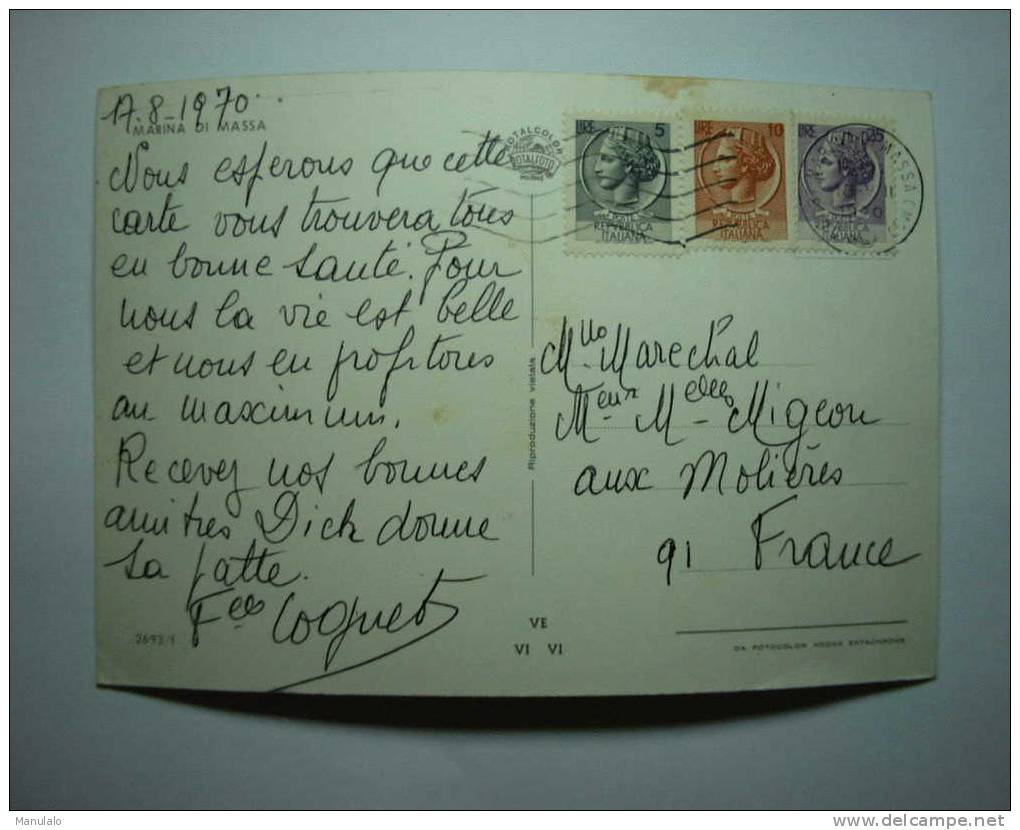 17.8-1970
MARINA DI MASSA
Nous esperons que cette
carte vous trouvera tous
en bonne santé. Pour
nous la vie est belle
et nous en profitons
au maximum.
Recevez nos bonnes
amitiés Dick donne
sa patte.
Coquet
2693/1
ROTALCOLOR
ROTALFOTO
LIRE 5
POSTE
REPVBBLICA
ITALIANA
LIRE 10
POSTE
REPVBBLICA
ITALIANA
LIRE 25
REPVBBLICA
ITALIANA
MASSA
Riproduzione vietata
Mlle Marechal
Meur Melles Migeon
aux Molières
91 France
VE
VI VI
DA FOTOCOLOR KODAK EKTACHROME
Manulalo
www.delcampe.net